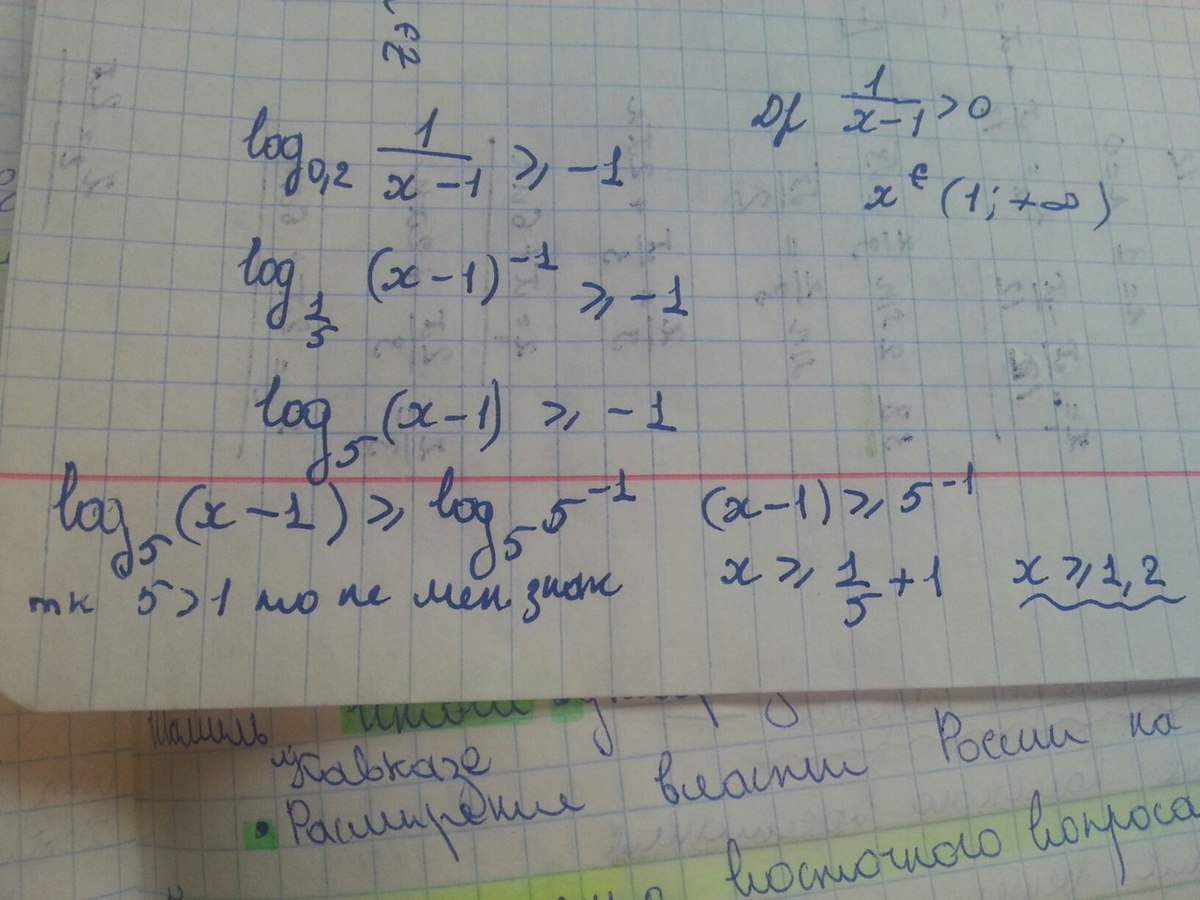 log_{0,2} \frac{1}{x-1} ⩾ -1
Df \frac{1}{x-1} > 0
x ∈ (1; +∞)
log_{\frac{1}{5}} (x-1)^{-1} ⩾ -1
log_5 (x-1) ⩾ -1
log_5 (x-1) ⩾ log_5 5^{-1}
(x-1) ⩾ 5^{-1}
тк 5>1 то не мен знак
x ⩾ \frac{1}{5} + 1
x ⩾ 1,2
Шамиль
Итоги
Кавказе
• Расширение власти России на
восточного вопроса